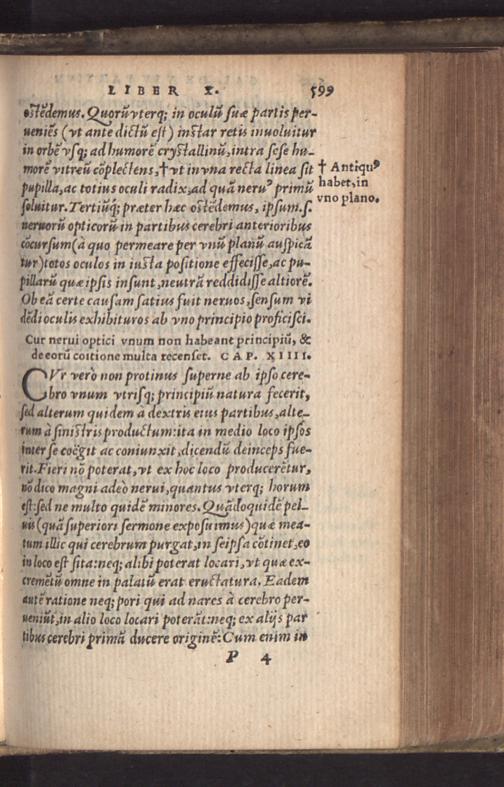 LIBER X. 599
ostēdemus. Quorū vterq; in oculū suæ partis per-
ueniēs (vt ante dictū est) instar retis inuoluitur
in orbē vsq; ad humorē crystallinū, intra sese hu-
morē vitreū cōplectens, † vt in vna recta linea sit
pupilla, ac totius oculi radix, ad quā neruꝰ primū
soluitur. Tertiūq; præter hæc ostēdemus, ipsum .s.
neruorū opticorū in partibus cerebri anterioribus
cōcursum (à quo permeare per vnū planū auspicā
tur) totos oculos in iusta positione effecisse, ac pu-
pillarū quæ ipsis insunt, neutrā reddidisse altiorē.
Ob eā certe causam satius fuit neruos, sensum vi
dēdi oculis exhibituros ab vno principio proficisci.
† Antiquꝰ
habet, in
vno plano.
Cur nerui optici vnum non habeant principiū, &
de eorū coitione multa recenset. CAP. XIIII.
CVr verò non protinus superne ab ipso cere-
bro vnum vtrisq; principiū natura fecerit,
sed alterum quidem à dextris eius partibus, alte-
rum à sinistris productum: ita in medio loco ipsos
inter se coëgit ac coniunxit, dicendū deinceps fue-
rit. Fieri nō poterat, vt ex hoc loco producerētur,
nō dico magni adeò nerui, quantus vterq; horum
est: sed ne multo quidē minores. Quādoquidē pel-
uis (quā superiori sermone exposuimus) quæ mea-
tum illic qui cerebrum purgat, in seipsa cōtinet, eo
in loco est sita: neq; alibi poterat locari, vt quæ ex-
cremētū omne in palatū erat eructatura. Eadem
autē ratione neq; pori qui ad nares à cerebro per-
ueniūt, in alio loco locari poterāt: neq; ex alijs par
tibus cerebri primā ducere originē: Cum enim in
P 4